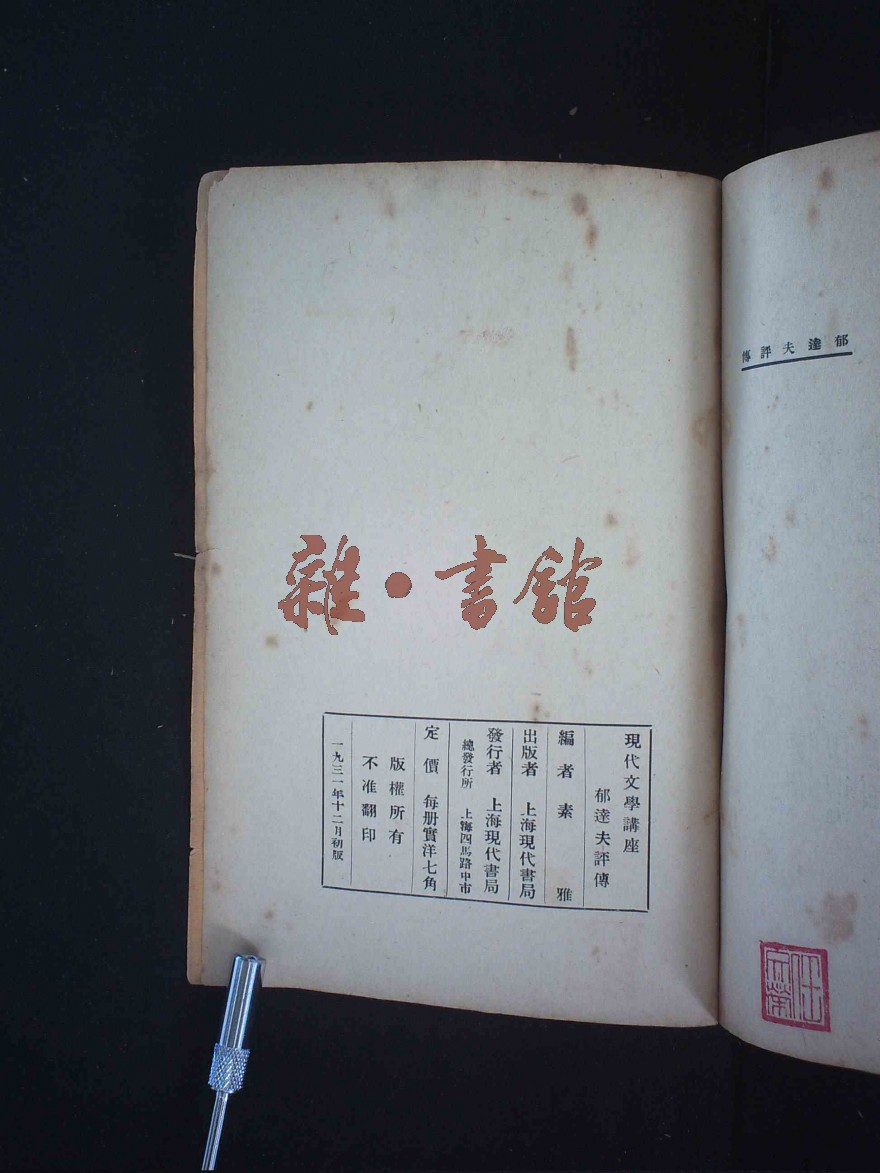 郁達夫評傳
現代文學講座
郁達夫評傳
編者 素雅
出版者 上海現代書局
發行者 上海現代書局
總發行所 上海四馬路中市
定價 每册實洋七角
版權所有
不准翻印
一九三一年十二月初版
雜•書館